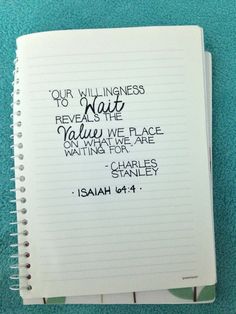 "OUR WILLINGNESS
TO Wait
REVEALS THE
Value WE PLACE
ON WHAT WE ARE
WAITING FOR."
- CHARLES
STANLEY
· ISAIAH 64:4 ·